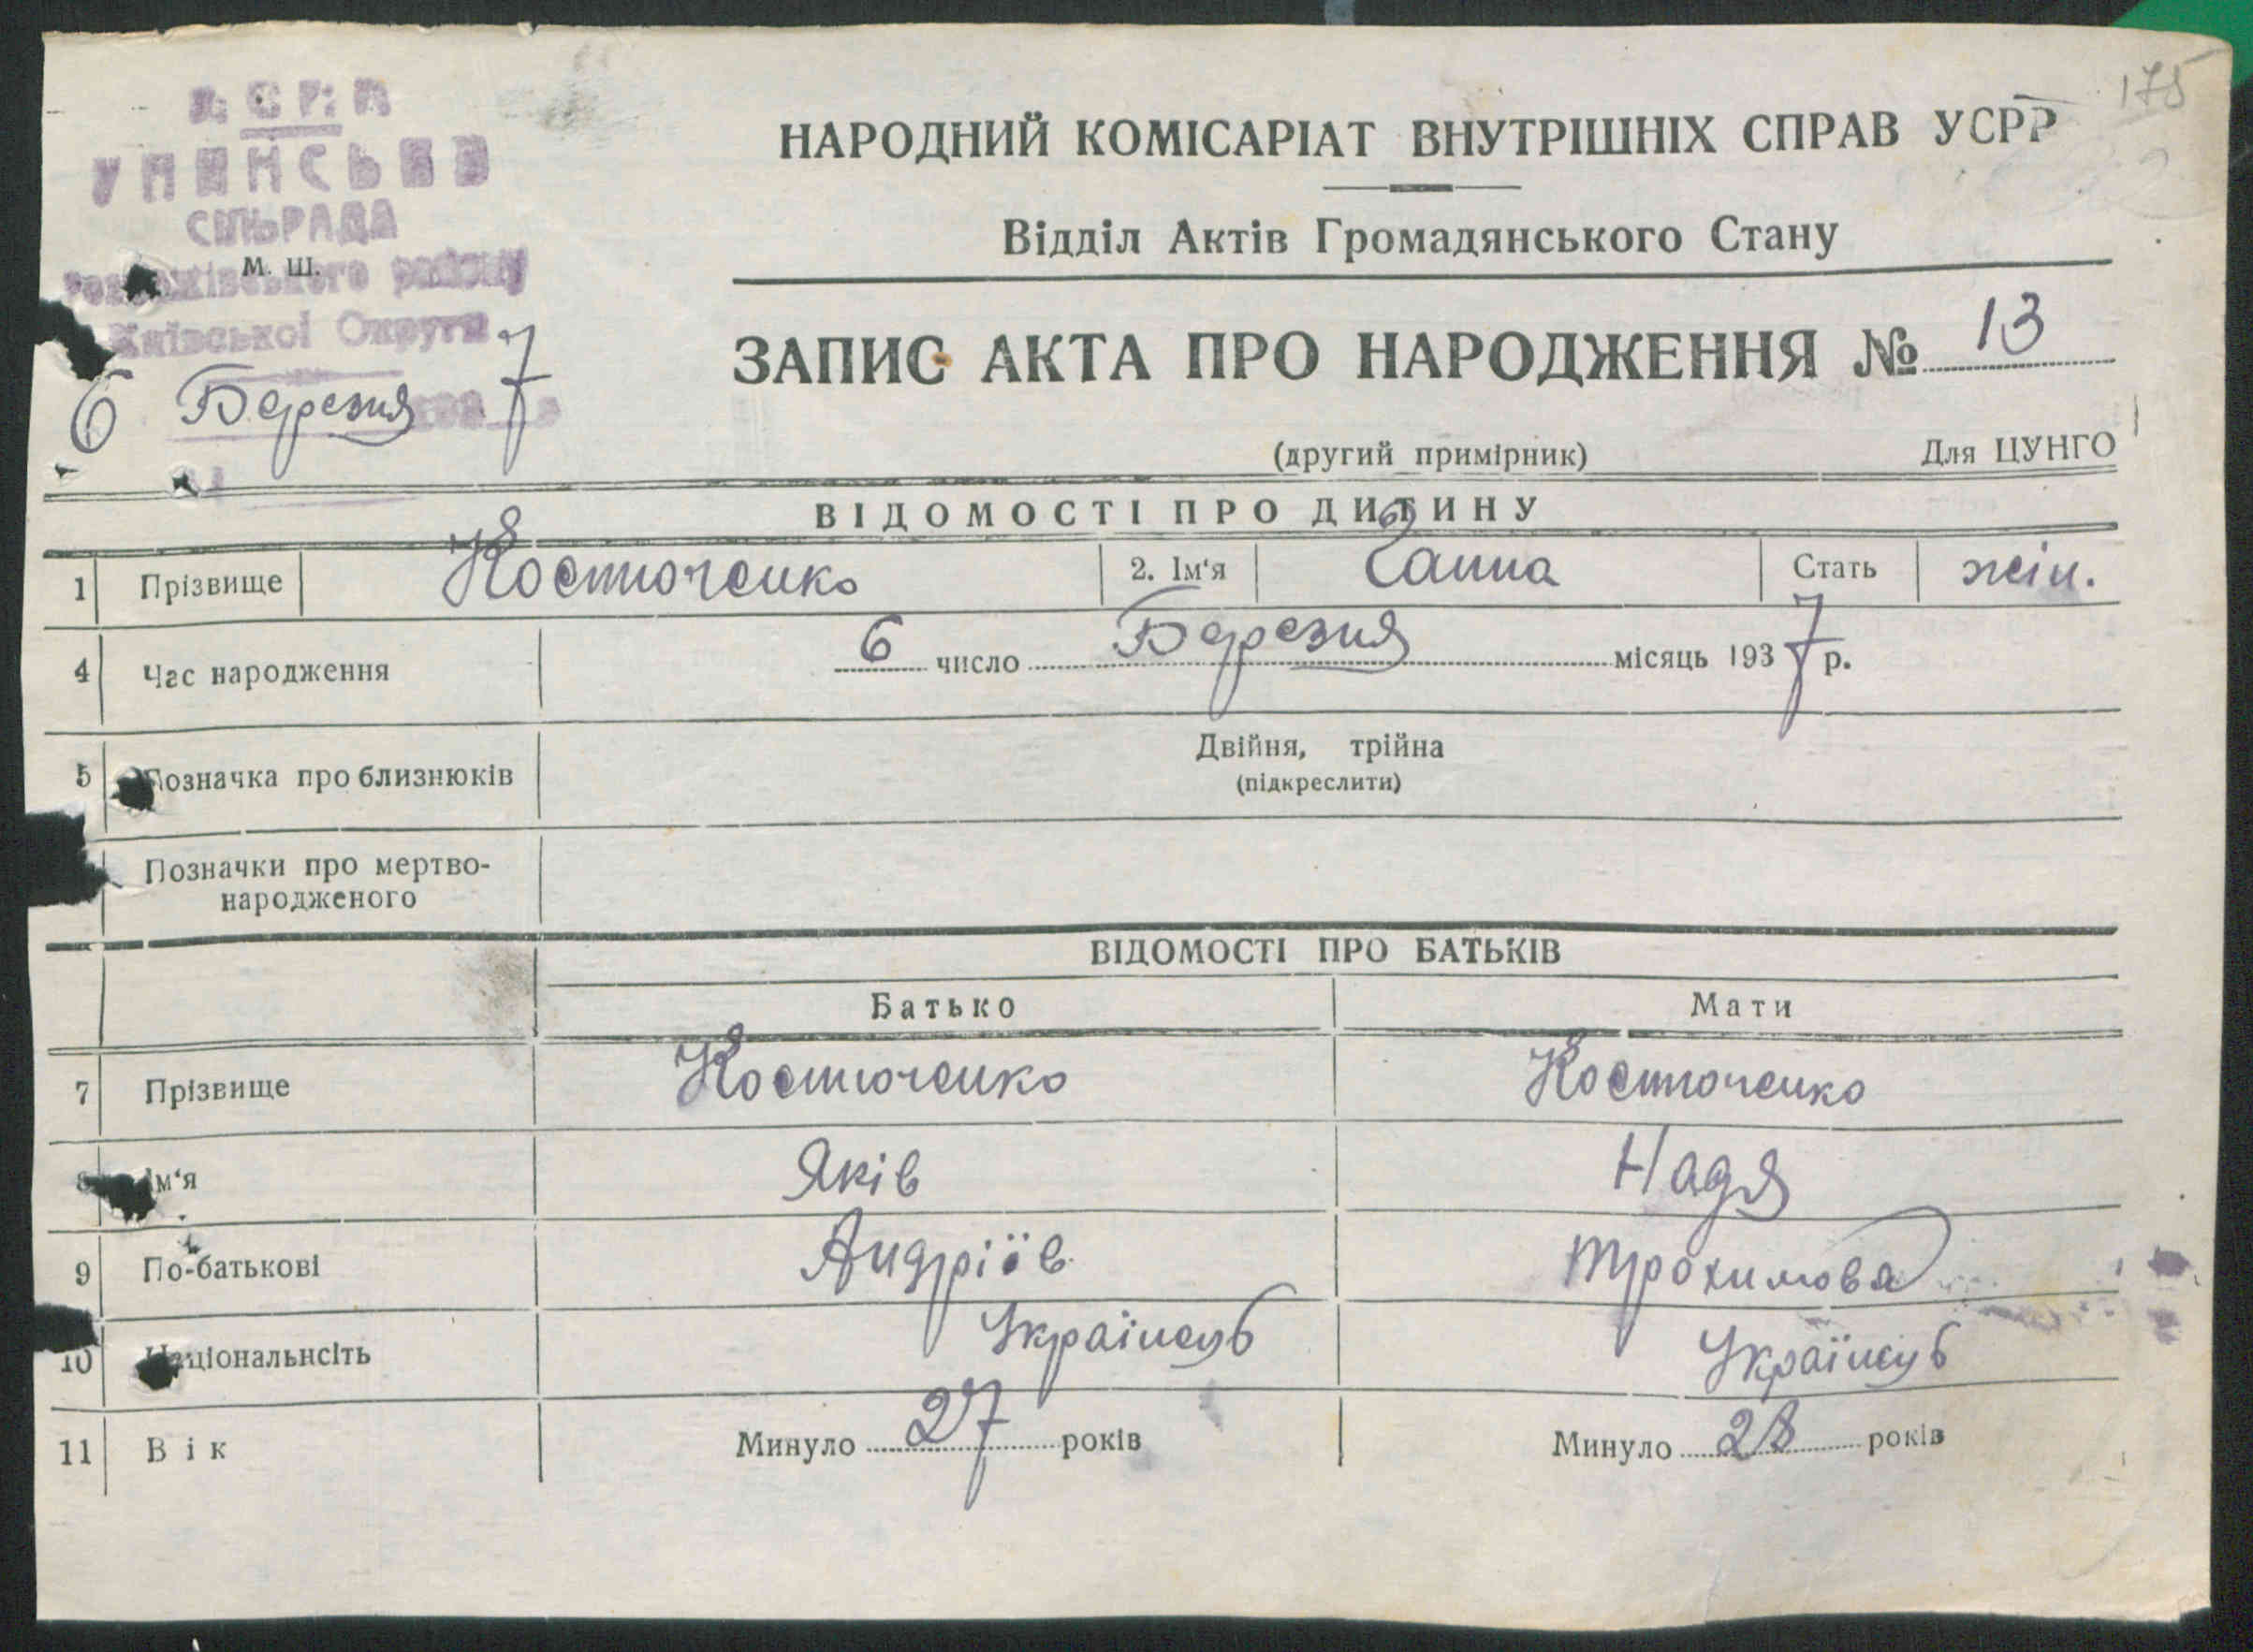 175
УСРР
УНИНСЬКА
СІЛЬРАДА
М. Ш.
району
Київської Округи
6 Березня 7
НАРОДНИЙ КОМІСАРІАТ ВНУТРІШНІХ СПРАВ УСРР
Відділ Актів Громадянського Стану
ЗАПИС АКТА ПРО НАРОДЖЕННЯ № 13
(другий примірник) Для ЦУНГО
ВІДОМОСТІ ПРО ДИТИНУ
1 Прізвище Костюченко 2. Ім'я Ганна Стать жін.
4 Час народження 6 число Березня місяць 1937 р.
5 Позначка про близнюків Двійня, трійна
(підкреслити)
Позначки про мертво-
народженого
ВІДОМОСТІ ПРО БАТЬКІВ
Батько Мати
7 Прізвище Костюченко Костюченко
8 Ім'я Яків Надя
9 По-батькові Андріїв Трохимова
10 Національнсіть Українець Українець
11 Вік Минуло 27 років Минуло 28 років